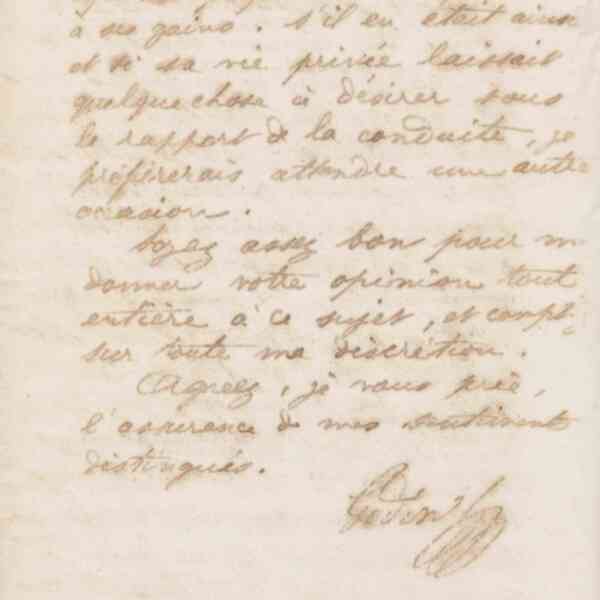 à ses gains. S'il en était ainsi
et si sa vie privée laissait
quelque chose à désirer sous
le rapport de la conduite, je
préférerais attendre une autre
occasion.
Soyez assez bon pour m
donner votre opinion tout
entière à ce sujet, et compt
sur toute ma discrétion.
Agréez, je vous prie,
l'assurance de mes sentiments
distingués.
Godin